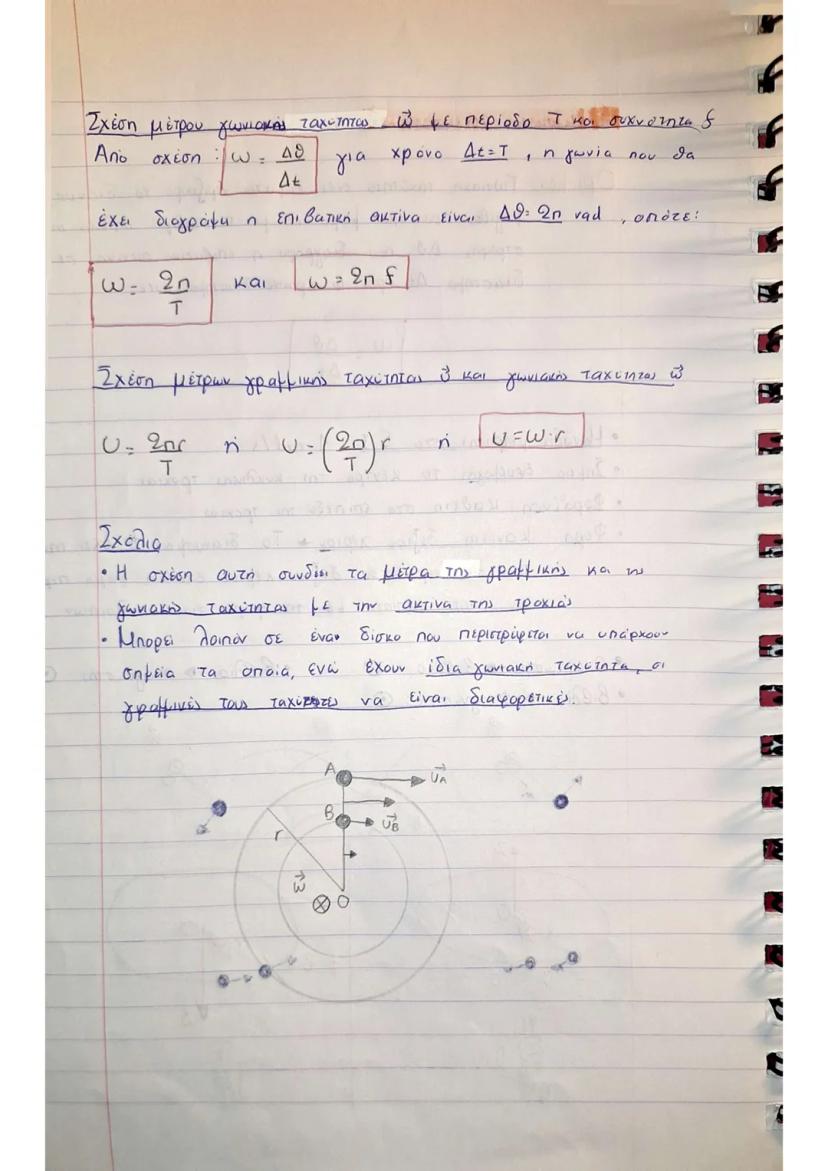 Σχέση μέτρου γωνιακής ταχύτητας ω⃗ με περίοδο T και συχνότητα f
Από σχέση : ω = Δθ/Δt για χρόνο Δt=T , η γωνία που θα
έχει διαγράψει η επιβατική ακτίνα είναι Δθ=2π rad , οπότε:
ω = 2π/T και ω = 2π f
Σχέση μέτρων γραμμικής ταχύτητας υ⃗ και γωνιακής ταχύτητας ω⃗
υ = 2πr/T ή υ = (2π/T) r ή υ = ω·r
Σχόλια
• Η σχέση αυτή συνδέει τα μέτρα της γραμμικής και της
γωνιακής ταχύτητας με την ακτίνα της τροχιάς
• Μπορεί λοιπόν σε έναν δίσκο που περιστρέφεται να υπάρχουν
σημεία τα οποία, ενώ έχουν ίδια γωνιακή ταχύτητα, οι
γραμμικές τους ταχύτητες να είναι διαφορετικές.
A υ⃗A
B υ⃗B
r
ω⃗
O